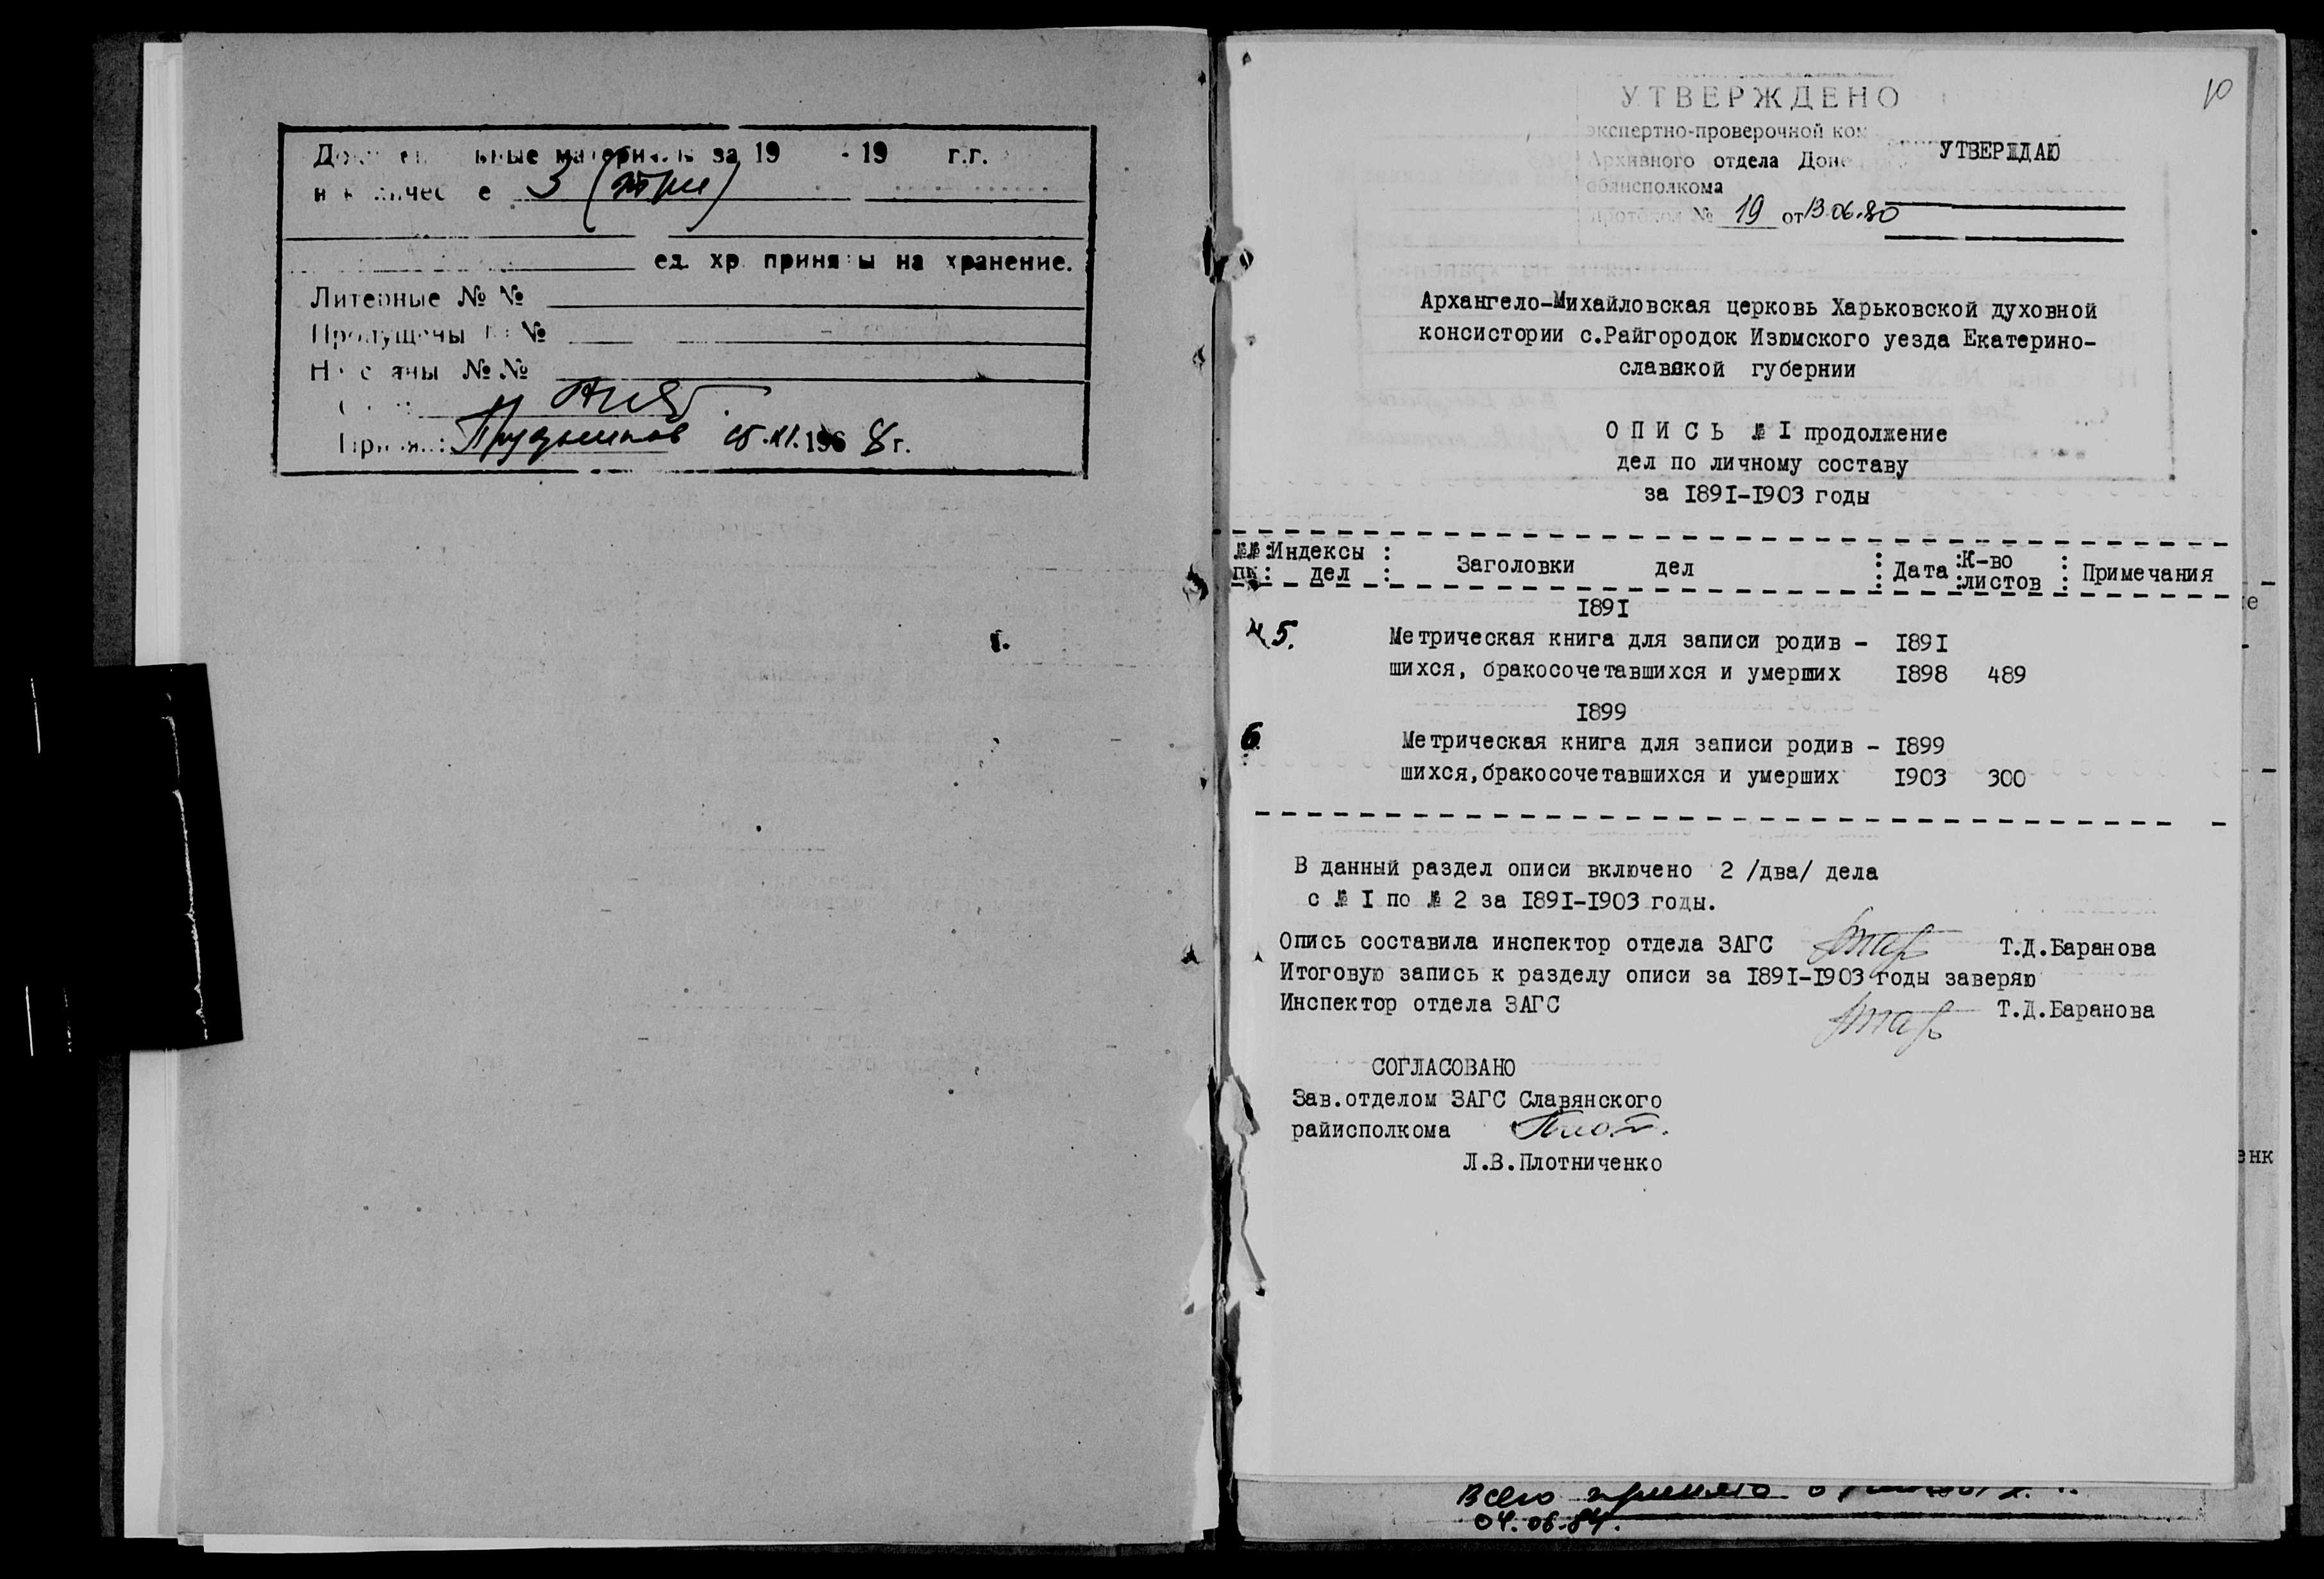 материалы за 19 - 19 г.г.
3 (три)
ед. хр. приняты на хранение.
Литерные № №
Пропущены № №
№ №
196 8 г.
10
УТВЕРЖДЕНО
экспертно-проверочной ком
Архивного отдела Доне
облисполкома
протокол № 19 от 13.06.80
УТВЕРЖДАЮ
Архангело-Михайловская церковь Харьковской духовной
консистории с.Райгородок Изюмского уезда Екатерино-
славской губернии
О П И С Ь № I продолжение
дел по личному составу
за I89I-I903 годы
№№ :Индексы : Заголовки дел : Дата :К-во : Примечания
пп : дел : : :листов :
I89I
5. Метрическая книга для записи родив - I89I
шихся, бракосочетавшихся и умерших I898 489
I899
6 Метрическая книга для записи родив - I899
шихся,бракосочетавшихся и умерших I903 300
В данный раздел описи включено 2 /два/ дела
с № I по № 2 за I89I-I903 годы.
Опись составила инспектор отдела ЗАГС Т.Д.Баранова
Итоговую запись к разделу описи за I89I-I903 годы заверяю
Инспектор отдела ЗАГС Т.Д.Баранова
СОГЛАСОВАНО
Зав.отделом ЗАГС Славянского
райисполкома
Л.В.Плотниченко
Всего принято
04.06.84.